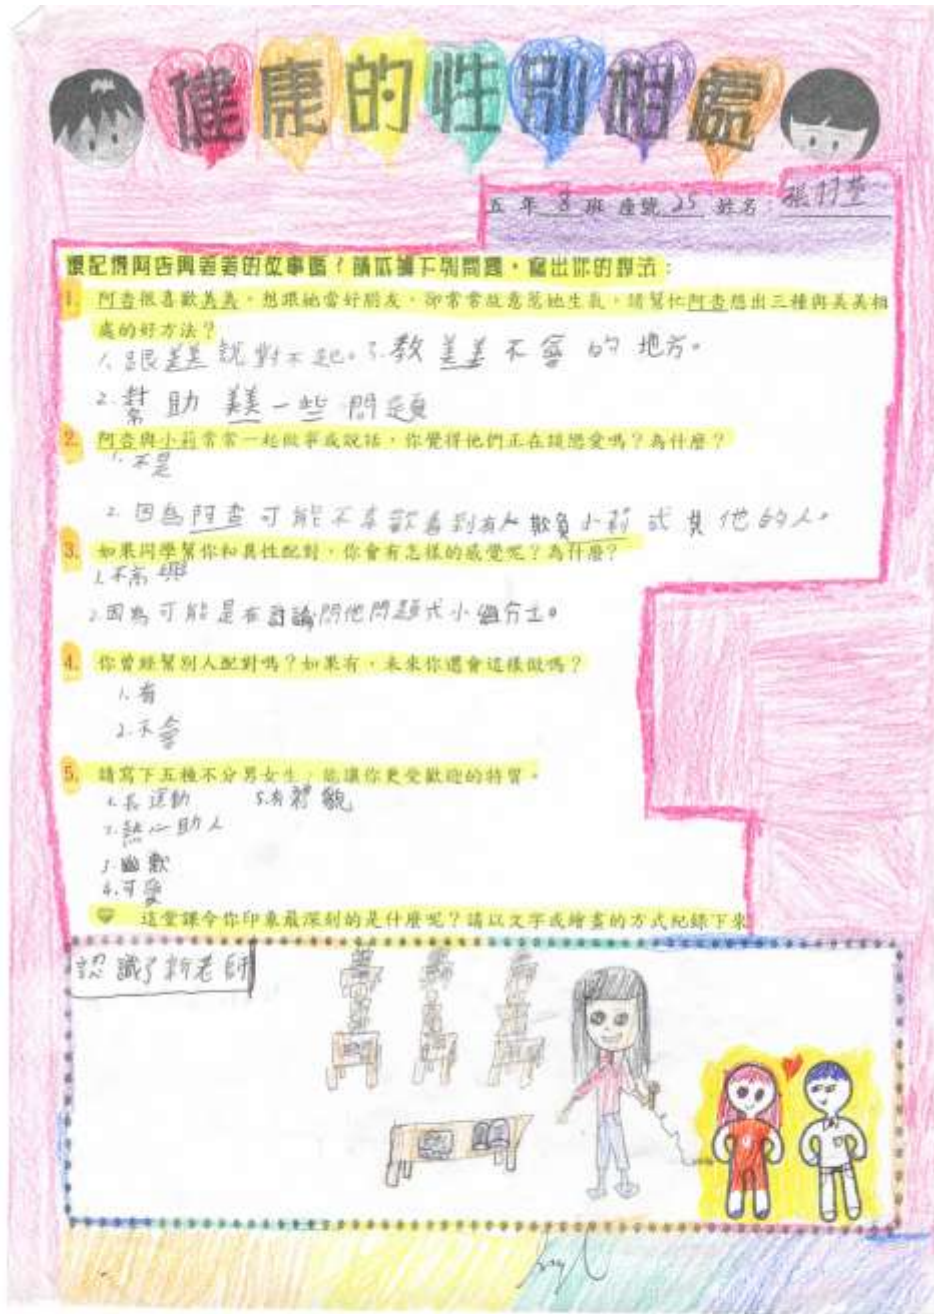 健康的性別相處
五年 8 班 座號 25 姓名：張
還記得阿杏與美美的故事嗎？請依據下列問題，寫出你的想法：
1. 阿杏很喜歡美美，想跟她當好朋友，卻常常故意惹她生氣，請幫忙阿杏想出三種與美美相
處的好方法？
1.跟美美說對不起。3.教美美不會的地方。
2.幫助美美一些問題
2. 阿杏與小莉常常一起做事或說話，你覺得他們正在談戀愛嗎？為什麼？
1.不是
2.因為阿杏可能不喜歡看到有人欺負小莉或其他的人。
3. 如果同學幫你和異性配對，你會有怎樣的感覺呢？為什麼？
1.不高興
2.因為可能是在討論問他問題或小組分工。
4. 你曾經幫別人配對嗎？如果有，未來你還會這樣做嗎？
1.有
2.不會
5. 請寫下五種不分男女生，能讓你更受歡迎的特質。
1.長運動 5.有禮貌
2.熱心助人
3.幽默
4.可愛
這堂課令你印象最深刻的是什麼呢？請以文字或繪畫的方式紀錄下來
認識了新老師